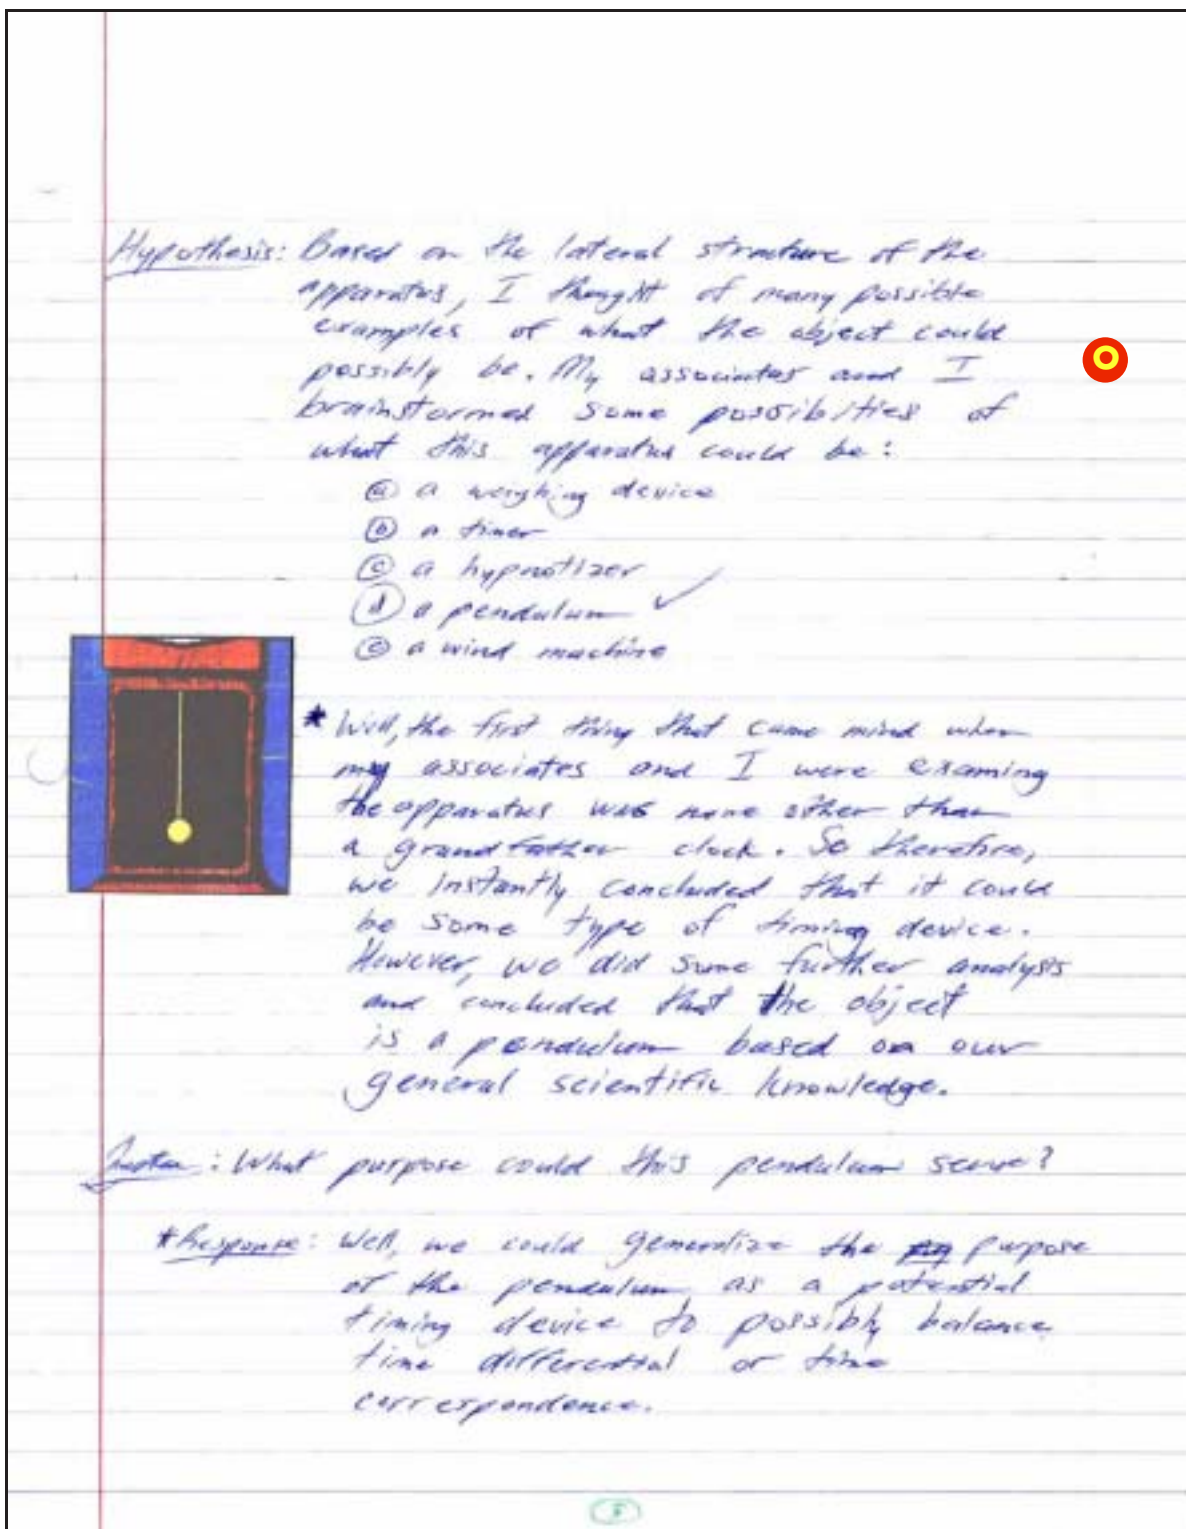 Hypothesis: Based on the lateral structure of the
apparatus, I thought of many possible
examples of what the object could
possibly be. My associates and I
brainstormed some possibilties of
what this apparatus could be:
ⓐ a weighing device
ⓑ a timer
ⓒ a hypnotizer
ⓓ a pendulum ✓
ⓔ a wind machine
* Well, the first thing that came mind when
my associates and I were examing
the apparatus was none other than
a grandfather clock. So therefore,
we instantly concluded that it could
be some type of timing device.
However, we did some further analysis
and concluded that the object
is a pendulum based on our
general scientific knowledge.
: What purpose could this pendulum serve?
*Response: Well, we could generalize the purpose
of the pendulum as a potential
timing device to possibly balance
time differential or time
correspondence.